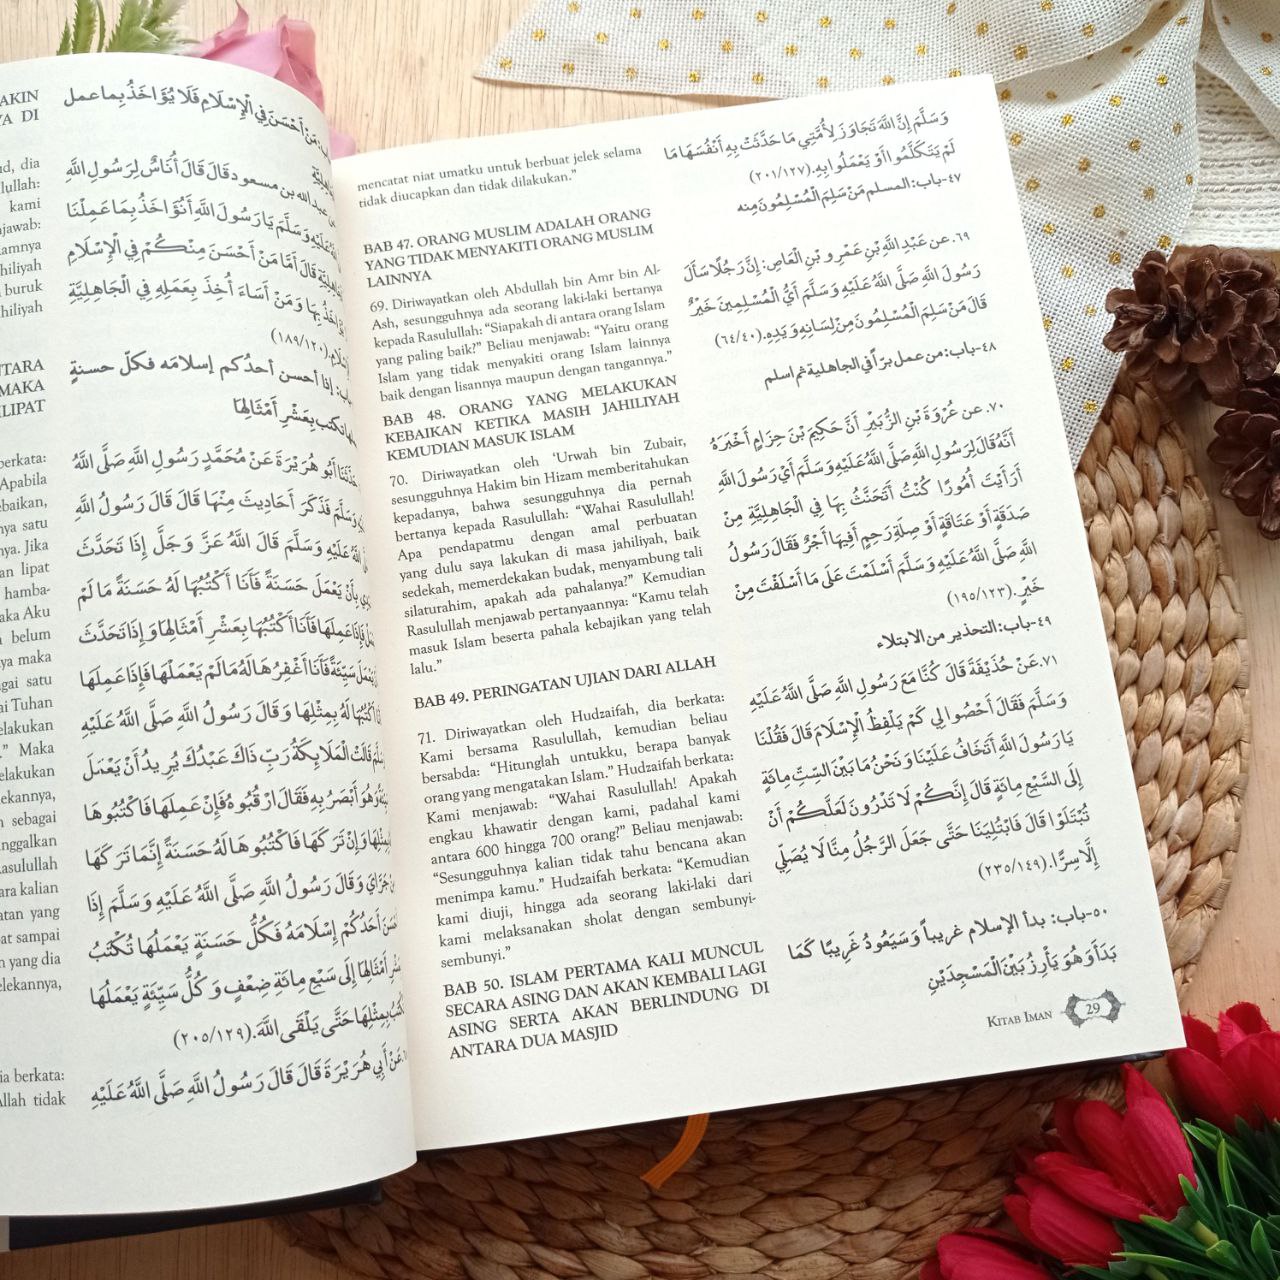 AKIN
YA DI
nd, dia
lullah:
kami
njawab:
kamnya
hiliyah
buruk
hiliyah
NTARA
MAKA
LIPAT
berkata:
Apabila
ebaikan,
nya satu
nya. Jika
an lipat
hamba-
aka Aku
belum
ya maka
gai satu
ai Tuhan
elakukan
.” Maka
elakukan
ekannya,
sebagai
nggalkan
asulullah
ara kalian
atan yang
pat sampai
n yang dia
elekannya,
dia berkata:
Allah tidak
مَنْ أَحْسَنَ فِي الْإِسْلَامِ فَلَا يُؤَاخَذُ بِمَا عمل
عبد الله بن مسعود قَالَ قَالَ أُنَاسٌ لِرَسُولِ اللَّهِ
عَلَيْهِ وَسَلَّمَ يَا رَسُولَ اللَّهِ أَنُؤَاخَذُ بِمَا عَمِلْنَا
قَالَ أَمَّا مَنْ أَحْسَنَ مِنْكُمْ فِي الْإِسْلَامِ
بِهَا وَمَنْ أَسَاءَ أُخِذَ بِعَمَلِهِ فِي الْجَاهِلِيَّةِ
(١٨٩/١٢٠)
باب: إذا أحسن أحدُكم إسلامَه فكلّ حسنةٍ
تكتب بِعَشْرِ أَمْثَالِهَا
أَبُو هُرَيْرَةَ عَنْ مُحَمَّدٍ رَسُولِ اللَّهِ صَلَّى اللَّهُ
وَسَلَّمَ فَذَكَرَ أَحَادِيثَ مِنْهَا قَالَ قَالَ رَسُولُ اللَّهِ
اللَّهُ عَلَيْهِ وَسَلَّمَ قَالَ اللَّهُ عَزَّ وَجَلَّ إِذَا تَحَدَّثَ
بِأَنْ يَعْمَلَ حَسَنَةً فَأَنَا أَكْتُبُهَا لَهُ حَسَنَةً مَا لَمْ
فَإِذَا عَمِلَهَا فَأَنَا أَكْتُبُهَا بِعَشْرِ أَمْثَالِهَا وَإِذَا تَحَدَّثَ
سَيِّئَةً فَأَنَا أَغْفِرُهَا لَهُ مَا لَمْ يَعْمَلْهَا فَإِذَا عَمِلَهَا
أَكْتُبُهَا لَهُ بِمِثْلِهَا وَقَالَ رَسُولُ اللَّهِ صَلَّى اللَّهُ عَلَيْهِ
قَالَتْ الْمَلَائِكَةُ رَبِّ ذَاكَ عَبْدُكَ يُرِيدُ أَنْ يَعْمَلَ
وَهُوَ أَبْصَرُ بِهِ فَقَالَ ارْقُبُوهُ فَإِنْ عَمِلَهَا فَاكْتُبُوهَا
بِمِثْلِهَا وَإِنْ تَرَكَهَا فَاكْتُبُوهَا لَهُ حَسَنَةً إِنَّمَا تَرَكَهَا
جَرَّايَ وَقَالَ رَسُولُ اللَّهِ صَلَّى اللَّهُ عَلَيْهِ وَسَلَّمَ إِذَا
أَحَدُكُمْ إِسْلَامَهُ فَكُلُّ حَسَنَةٍ يَعْمَلُهَا تُكْتَبُ
أَمْثَالِهَا إِلَى سَبْعِ مِائَةِ ضِعْفٍ وَكُلُّ سَيِّئَةٍ يَعْمَلُهَا
بِمِثْلِهَا حَتَّى يَلْقَى اللَّهَ. (٢٠٥/١٢٩)
عَنْ أَبِي هُرَيْرَةَ قَالَ قَالَ رَسُولُ اللَّهِ صَلَّى اللَّهُ عَلَيْهِ
mencatat niat umatku untuk berbuat jelek selama
tidak diucapkan dan tidak dilakukan.”
BAB 47. ORANG MUSLIM ADALAH ORANG
YANG TIDAK MENYAKITI ORANG MUSLIM
LAINNYA
69. Diriwayatkan oleh Abdullah bin Amr bin Al-
Ash, sesungguhnya ada seorang laki-laki bertanya
kepada Rasulullah: “Siapakah di antara orang Islam
yang paling baik?” Beliau menjawab: “Yaitu orang
Islam yang tidak menyakiti orang Islam lainnya
baik dengan lisannya maupun dengan tangannya.”
BAB 48. ORANG YANG MELAKUKAN
KEBAIKAN KETIKA MASIH JAHILIYAH
KEMUDIAN MASUK ISLAM
70. Diriwayatkan oleh ‘Urwah bin Zubair,
sesungguhnya Hakim bin Hizam memberitahukan
kepadanya, bahwa sesungguhnya dia pernah
bertanya kepada Rasulullah: “Wahai Rasulullah!
Apa pendapatmu dengan amal perbuatan
yang dulu saya lakukan di masa jahiliyah, baik
sedekah, memerdekakan budak, menyambung tali
silaturahim, apakah ada pahalanya?” Kemudian
Rasulullah menjawab pertanyaannya: “Kamu telah
masuk Islam beserta pahala kebajikan yang telah
lalu.”
BAB 49. PERINGATAN UJIAN DARI ALLAH
71. Diriwayatkan oleh Hudzaifah, dia berkata:
Kami bersama Rasulullah, kemudian beliau
bersabda: “Hitunglah untukku, berapa banyak
orang yang mengatakan Islam.” Hudzaifah berkata:
Kami menjawab: “Wahai Rasulullah! Apakah
engkau khawatir dengan kami, padahal kami
antara 600 hingga 700 orang?” Beliau menjawab:
“Sesungguhnya kalian tidak tahu bencana akan
menimpa kamu.” Hudzaifah berkata: “Kemudian
kami diuji, hingga ada seorang laki-laki dari
kami melaksanakan sholat dengan sembunyi-
sembunyi.”
BAB 50. ISLAM PERTAMA KALI MUNCUL
SECARA ASING DAN AKAN KEMBALI LAGI
ASING SERTA AKAN BERLINDUNG DI
ANTARA DUA MASJID
وَسَلَّمَ إِنَّ اللَّهَ تَجَاوَزَ لِأُمَّتِي مَا حَدَّثَتْ بِهِ أَنْفُسَهَا مَا
لَمْ يَتَكَلَّمُوا أَوْ يَعْمَلُوا بِهِ. (٢٠١/١٢٧)
٤٧-باب: المسلم مَنْ سَلِمَ الْمُسْلِمُونَ مِنه
٦٩. عن عَبْدِ اللَّهِ بْنِ عَمْرِو بْنِ الْعَاصِ: إِنَّ رَجُلًا سَأَلَ
رَسُولَ اللَّهِ صَلَّى اللَّهُ عَلَيْهِ وَسَلَّمَ أَيُّ الْمُسْلِمِينَ خَيْرٌ
قَالَ مَنْ سَلِمَ الْمُسْلِمُونَ مِنْ لِسَانِهِ وَيَدِهِ. (٦٤/٤٠)
٤٨-باب: من عمل برّاً في الجاهلية ثم اسلم
٧٠. عن عُرْوَةَ بْنِ الزُّبَيْرِ أَنَّ حَكِيمَ بْنَ حِزَامٍ أَخْبَرَهُ
أَنَّهُ قَالَ لِرَسُولِ اللَّهِ صَلَّى اللَّهُ عَلَيْهِ وَسَلَّمَ أَيْ رَسُولَ اللَّهِ
أَرَأَيْتَ أُمُورًا كُنْتُ أَتَحَنَّثُ بِهَا فِي الْجَاهِلِيَّةِ مِنْ
صَدَقَةٍ أَوْ عَتَاقَةٍ أَوْ صِلَةِ رَحِمٍ أَفِيهَا أَجْرٌ فَقَالَ رَسُولُ
اللَّهِ صَلَّى اللَّهُ عَلَيْهِ وَسَلَّمَ أَسْلَمْتَ عَلَى مَا أَسْلَفْتَ مِنْ
خَيْرٍ. (١٩٥/١٢٣)
٤٩-باب: التحذير من الابتلاء
٧١. عَنْ حُذَيْفَةَ قَالَ كُنَّا مَعَ رَسُولِ اللَّهِ صَلَّى اللَّهُ عَلَيْهِ
وَسَلَّمَ فَقَالَ أَحْصُوا لِي كَمْ يَلْفِظُ الْإِسْلَامَ قَالَ فَقُلْنَا
يَا رَسُولَ اللَّهِ أَتَخَافُ عَلَيْنَا وَنَحْنُ مَا بَيْنَ السِّتِّ مِائَةٍ
إِلَى السَّبْعِ مِائَةٍ قَالَ إِنَّكُمْ لَا تَدْرُونَ لَعَلَّكُمْ أَنْ
تُبْتَلَوْا قَالَ فَابْتُلِينَا حَتَّى جَعَلَ الرَّجُلُ مِنَّا لَا يُصَلِّي
إِلَّا سِرًّا. (٢٣٥/١٤٩)
٥٠-باب: بدأ الإسلام غريباً وَسَيَعُودُ غَرِيبًا كَمَا
بَدَأَ وَهُوَ يَأْرِزُ بَيْنَ الْمَسْجِدَيْنِ
KITAB IMAN 29